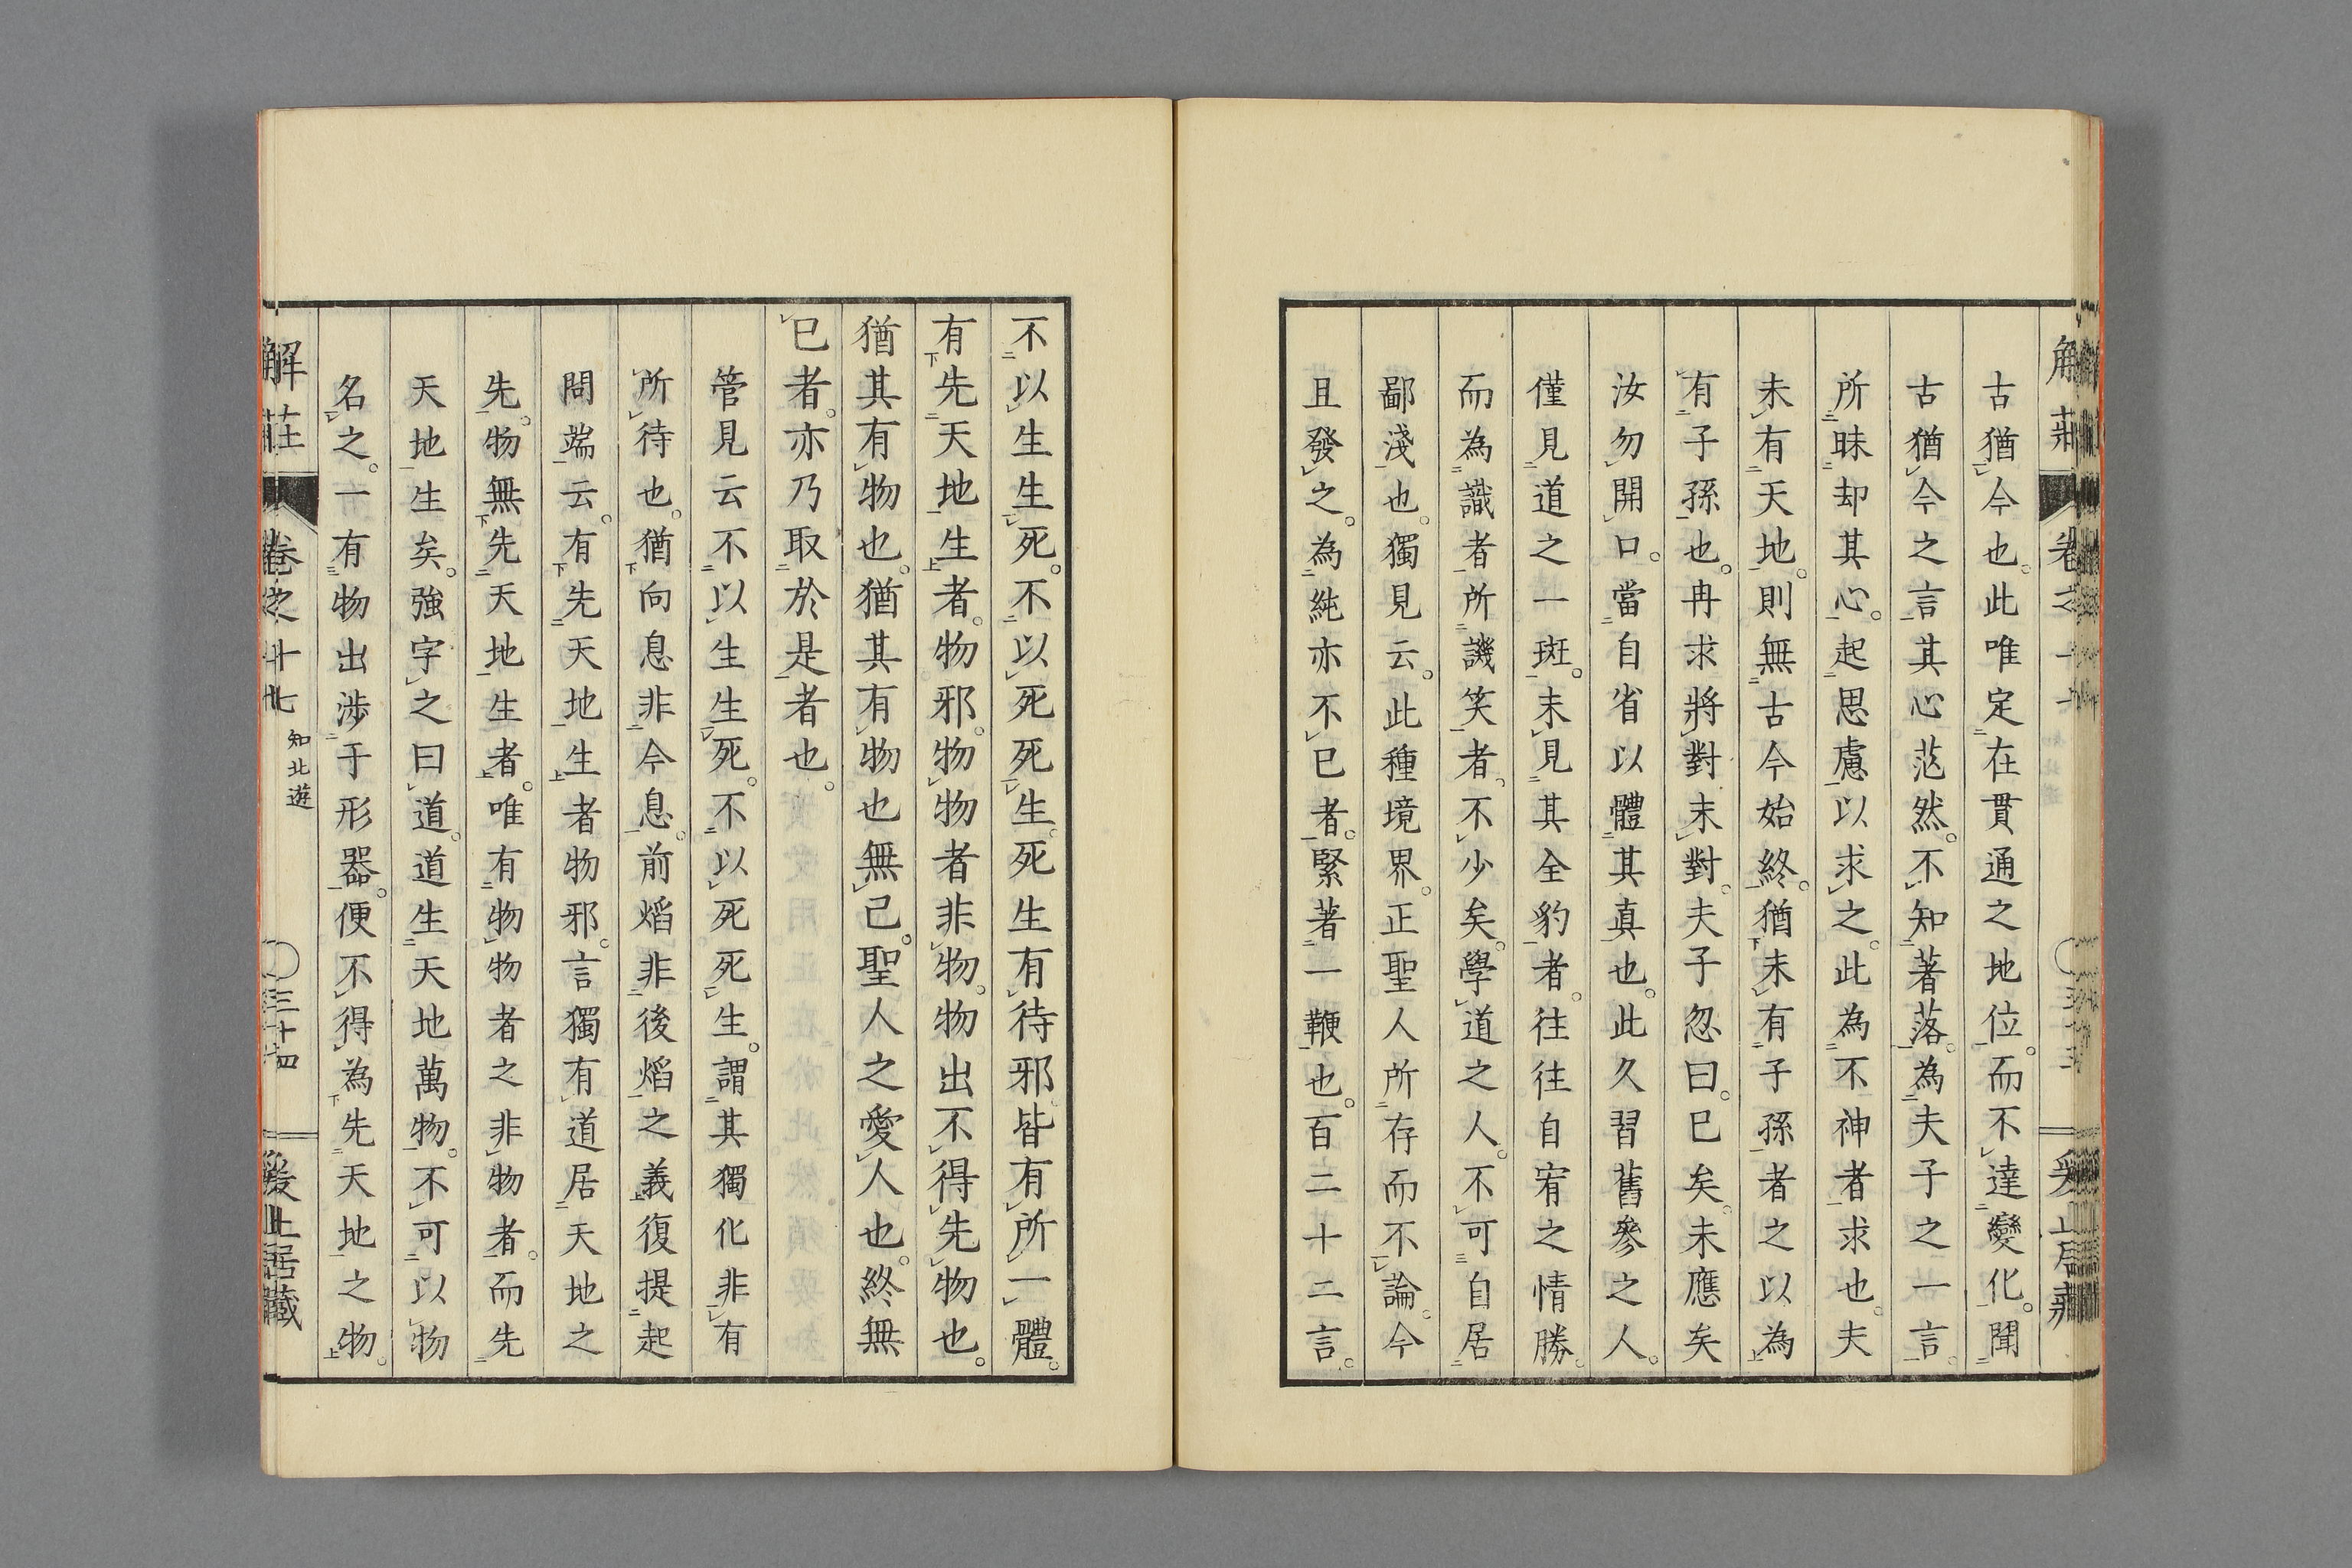 古猶今也。此唯定在貫通之地位。而不達變化。聞
古猶今之言其心茫然。不知著落。為夫子之一言。
所昧却其心。起思慮以求之。此為不神者求也。夫
未有天地。則無古今始終。猶未有子孫者之以為
有子孫也。冉求將對末對。夫子忽曰。已矣。未應矣
汝勿開口。當自省以體其真也。此久習舊參之人。
僅見道之一斑。未見其全豹者。往往自宥之情勝。
而為識者所譏笑者。不少矣。學道之人。不可自居
鄙淺也。獨見云。此種境界。正聖人所存而不論。今
且發之。為純亦不已者。緊著一鞭也。百二十二言。
不以生生死。不以死死生。死生有待邪皆有所一體。
有先天地生者。物邪。物物者非物。物出不得先物也。
猶其有物也。猶其有物也無已。聖人之愛人也。終無
已者。亦乃取於是者也。
管見云不以生生死。不以死死生。謂其獨化非有
所待也。猶向息非今息。前焰非後焰之義復提起
問端云。有先天地生者物邪。言獨有道居天地之
先。物無先天地生者。唯有物物者之非物者。而先
天地生矣。強字之曰道。道生天地萬物。不可以物
名之。一有物出渉于形器。便不得為先天地之物。
解莊 卷之十七 知北遊 三十四 發止居藏